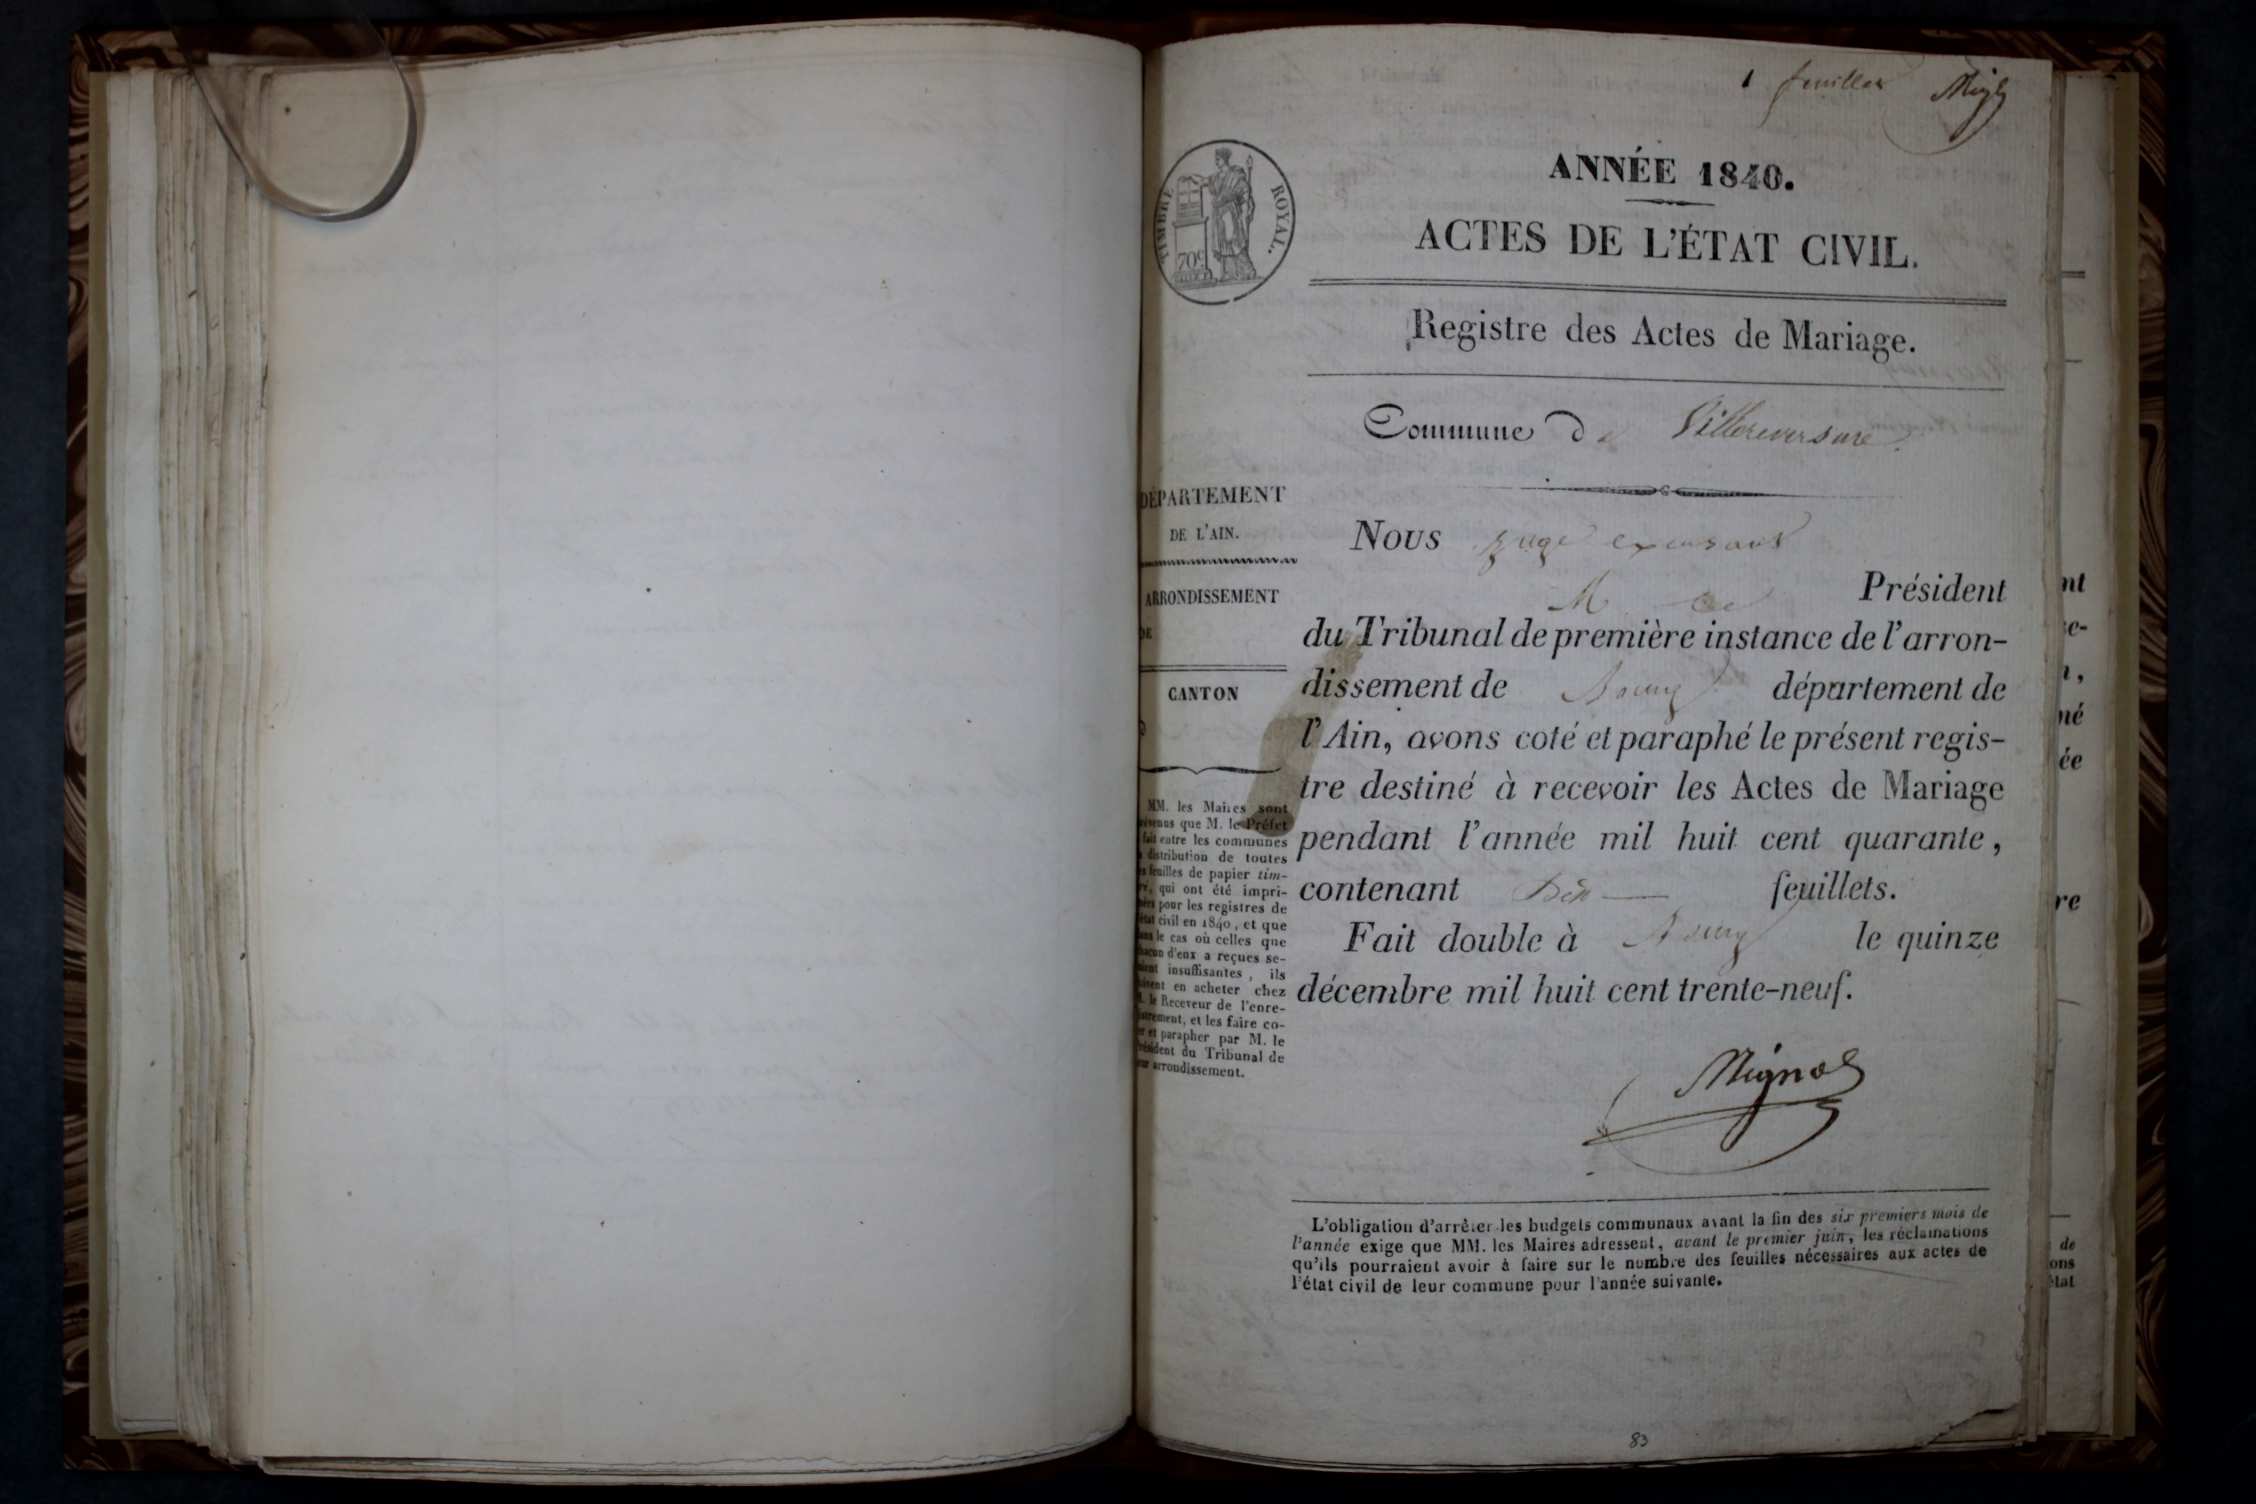 1 feuillet Migt
TIMBRE ROYAL.
70c
ANNÉE 1840.
ACTES DE L'ÉTAT CIVIL.
Registre des Actes de Mariage.
Commune de Villereversure
DÉPARTEMENT
DE L'AIN.
ARRONDISSEMENT
DE
CANTON
D
MM. les Maires sont
prévenus que M. le Préfet
fait entre les communes
la distribution de toutes
les feuilles de papier tim-
bré, qui ont été impri-
mées pour les registres de
l'état civil en 1840, et que
dans le cas où celles que
chacun d'eux a reçues se-
raient insuffisantes, ils
doivent en acheter chez
M. le Receveur de l'enre-
gistrement, et les faire co-
ter et parapher par M. le
Président du Tribunal de
leur arrondissement.
Nous juge exerçant
M. le Président
du Tribunal de première instance de l'arron-
dissement de Bourg département de
l'Ain, avons coté et paraphé le présent regis-
tre destiné à recevoir les Actes de Mariage
pendant l'année mil huit cent quarante,
contenant feuillets.
Fait double à Bourg le quinze
décembre mil huit cent trente-neuf.
Mignot
L'obligation d'arrêter les budgets communaux avant la fin des six premiers mois de
l'année exige que MM. les Maires adressent, avant le premier juin, les réclamations
qu'ils pourraient avoir à faire sur le nombre des feuilles nécessaires aux actes de
l'état civil de leur commune pour l'année suivante.
83
nt
e-
né
ée
re
de
ons
état